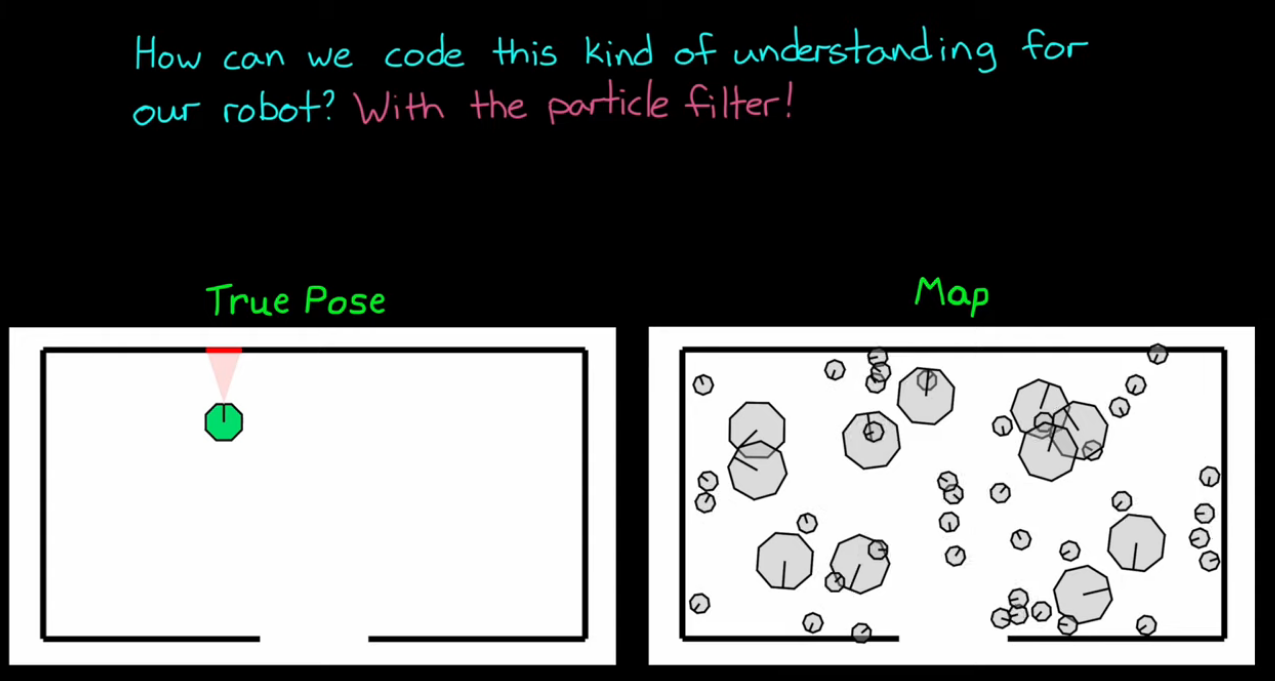 How can we code this kind of understanding for
our robot? With the particle filter!
True Pose
Map